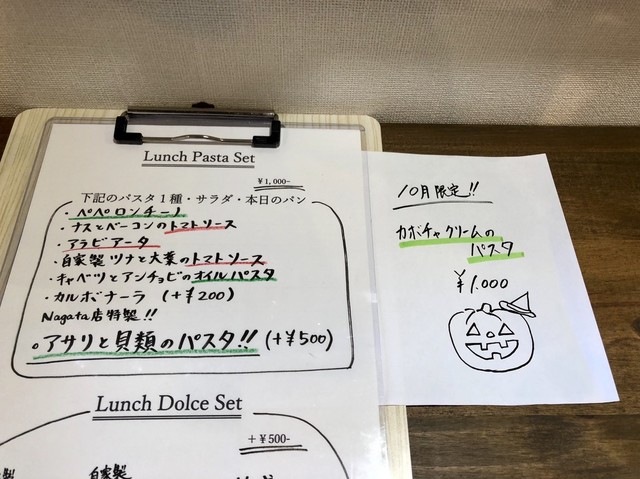 Lunch Pasta Set
¥1,000-
下記のパスタ1種・サラダ・本日のパン
・ペペロンチーノ
・ナスとベーコンのトマトソース
・アラビアータ
・自家製ツナと大葉のトマトソース
・キャベツとアンチョビのオイルパスタ
・カルボナーラ (+¥200)
Nagata店特製!!
○アサリと貝類のパスタ!! (+¥500)
Lunch Dolce Set
+¥500-
自家製
10月限定!!
カボチャクリームの
パスタ
¥1.000